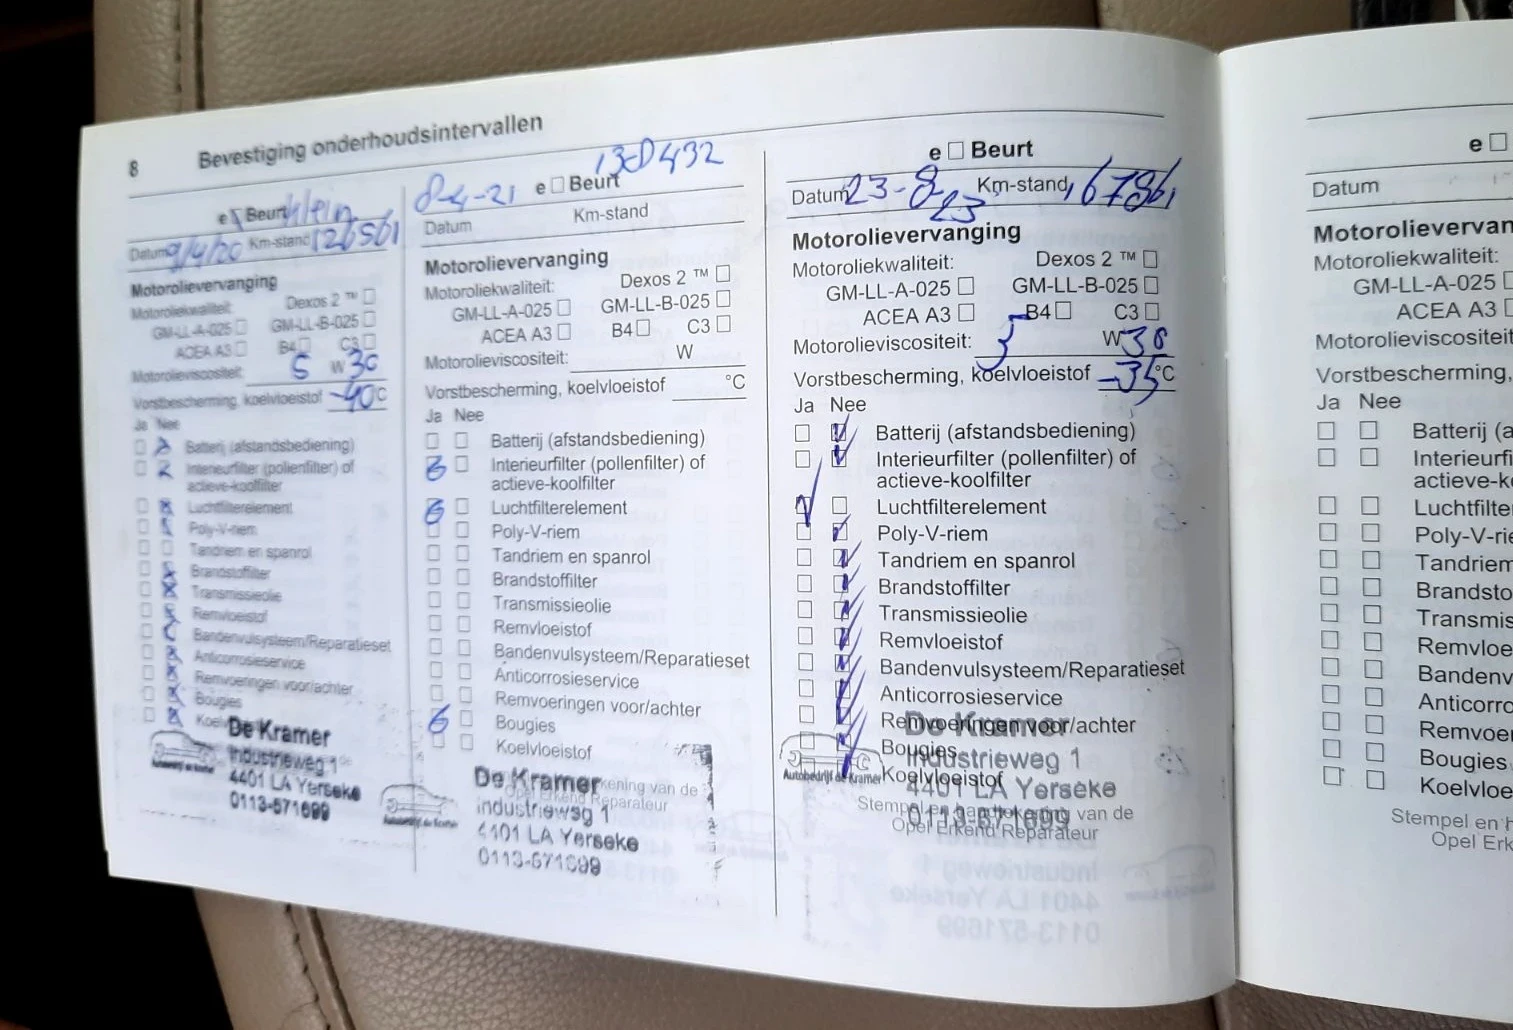 8 Bevestiging onderhoudsintervallen
e Beurt klein
Datum 9/4/20 Km-stand 126561
Motorolievervanging
Motoroliekwaliteit: Dexos 2 ™
GM-LL-A-025 GM-LL-B-025
ACEA A3 B4 C3
Motorolieviscositeit: 5 W 30
Vorstbescherming, koelvloeistof -40 °C
Ja Nee
Batterij (afstandsbediening)
Interieurfilter (pollenfilter) of
actieve-koolfilter
Luchtfilterelement
Poly-V-riem
Tandriem en spanrol
Brandstoffilter
Transmissieolie
Remvloeistof
Bandenvulsysteem/Reparatieset
Anticorrosieservice
Remvoeringen voor/achter
Bougies
De Kramer
Industrieweg 1
4401 LA Yerseke
0113-571699
130432
8-4-21 e Beurt
Datum Km-stand
Motorolievervanging
Motoroliekwaliteit: Dexos 2 ™
GM-LL-A-025 GM-LL-B-025
ACEA A3 B4 C3
Motorolieviscositeit: W
Vorstbescherming, koelvloeistof °C
Ja Nee
Batterij (afstandsbediening)
Interieurfilter (pollenfilter) of
actieve-koolfilter
Luchtfilterelement
Poly-V-riem
Tandriem en spanrol
Brandstoffilter
Transmissieolie
Remvloeistof
Bandenvulsysteem/Reparatieset
Anticorrosieservice
Remvoeringen voor/achter
Bougies
Koelvloeistof
De Kramer
Industrieweg 1
4401 LA Yerseke
0113-571699
e Beurt
Datum 23-8-23 Km-stand 167861
Motorolievervanging
Motoroliekwaliteit: Dexos 2 ™
GM-LL-A-025 GM-LL-B-025
ACEA A3 B4 C3
Motorolieviscositeit: 5 W 30
Vorstbescherming, koelvloeistof -35 °C
Ja Nee
Batterij (afstandsbediening)
Interieurfilter (pollenfilter) of
actieve-koolfilter
Luchtfilterelement
Poly-V-riem
Tandriem en spanrol
Brandstoffilter
Transmissieolie
Remvloeistof
Bandenvulsysteem/Reparatieset
Anticorrosieservice
Remvoeringen voor/achter
Bougies
Koelvloeistof
Stempel en handtekening van de
Opel Erkend Reparateur
Autobedrijf de Kramer
De Kramer
Industrieweg 1
4401 LA Yerseke
0113-571699
e
Datum
Motorolievervan
Motoroliekwaliteit:
GM-LL-A-025
ACEA A3
Motorolieviscositeit
Vorstbescherming,
Ja Nee
Batterij (a
Interieurfi
actieve-k
Luchtfilte
Poly-V-rie
Tandriem
Brandsto
Transmis
Remvloe
Banden
Anticorro
Remvoer
Bougies
Koelvloe
Stempel en h
Opel Erk